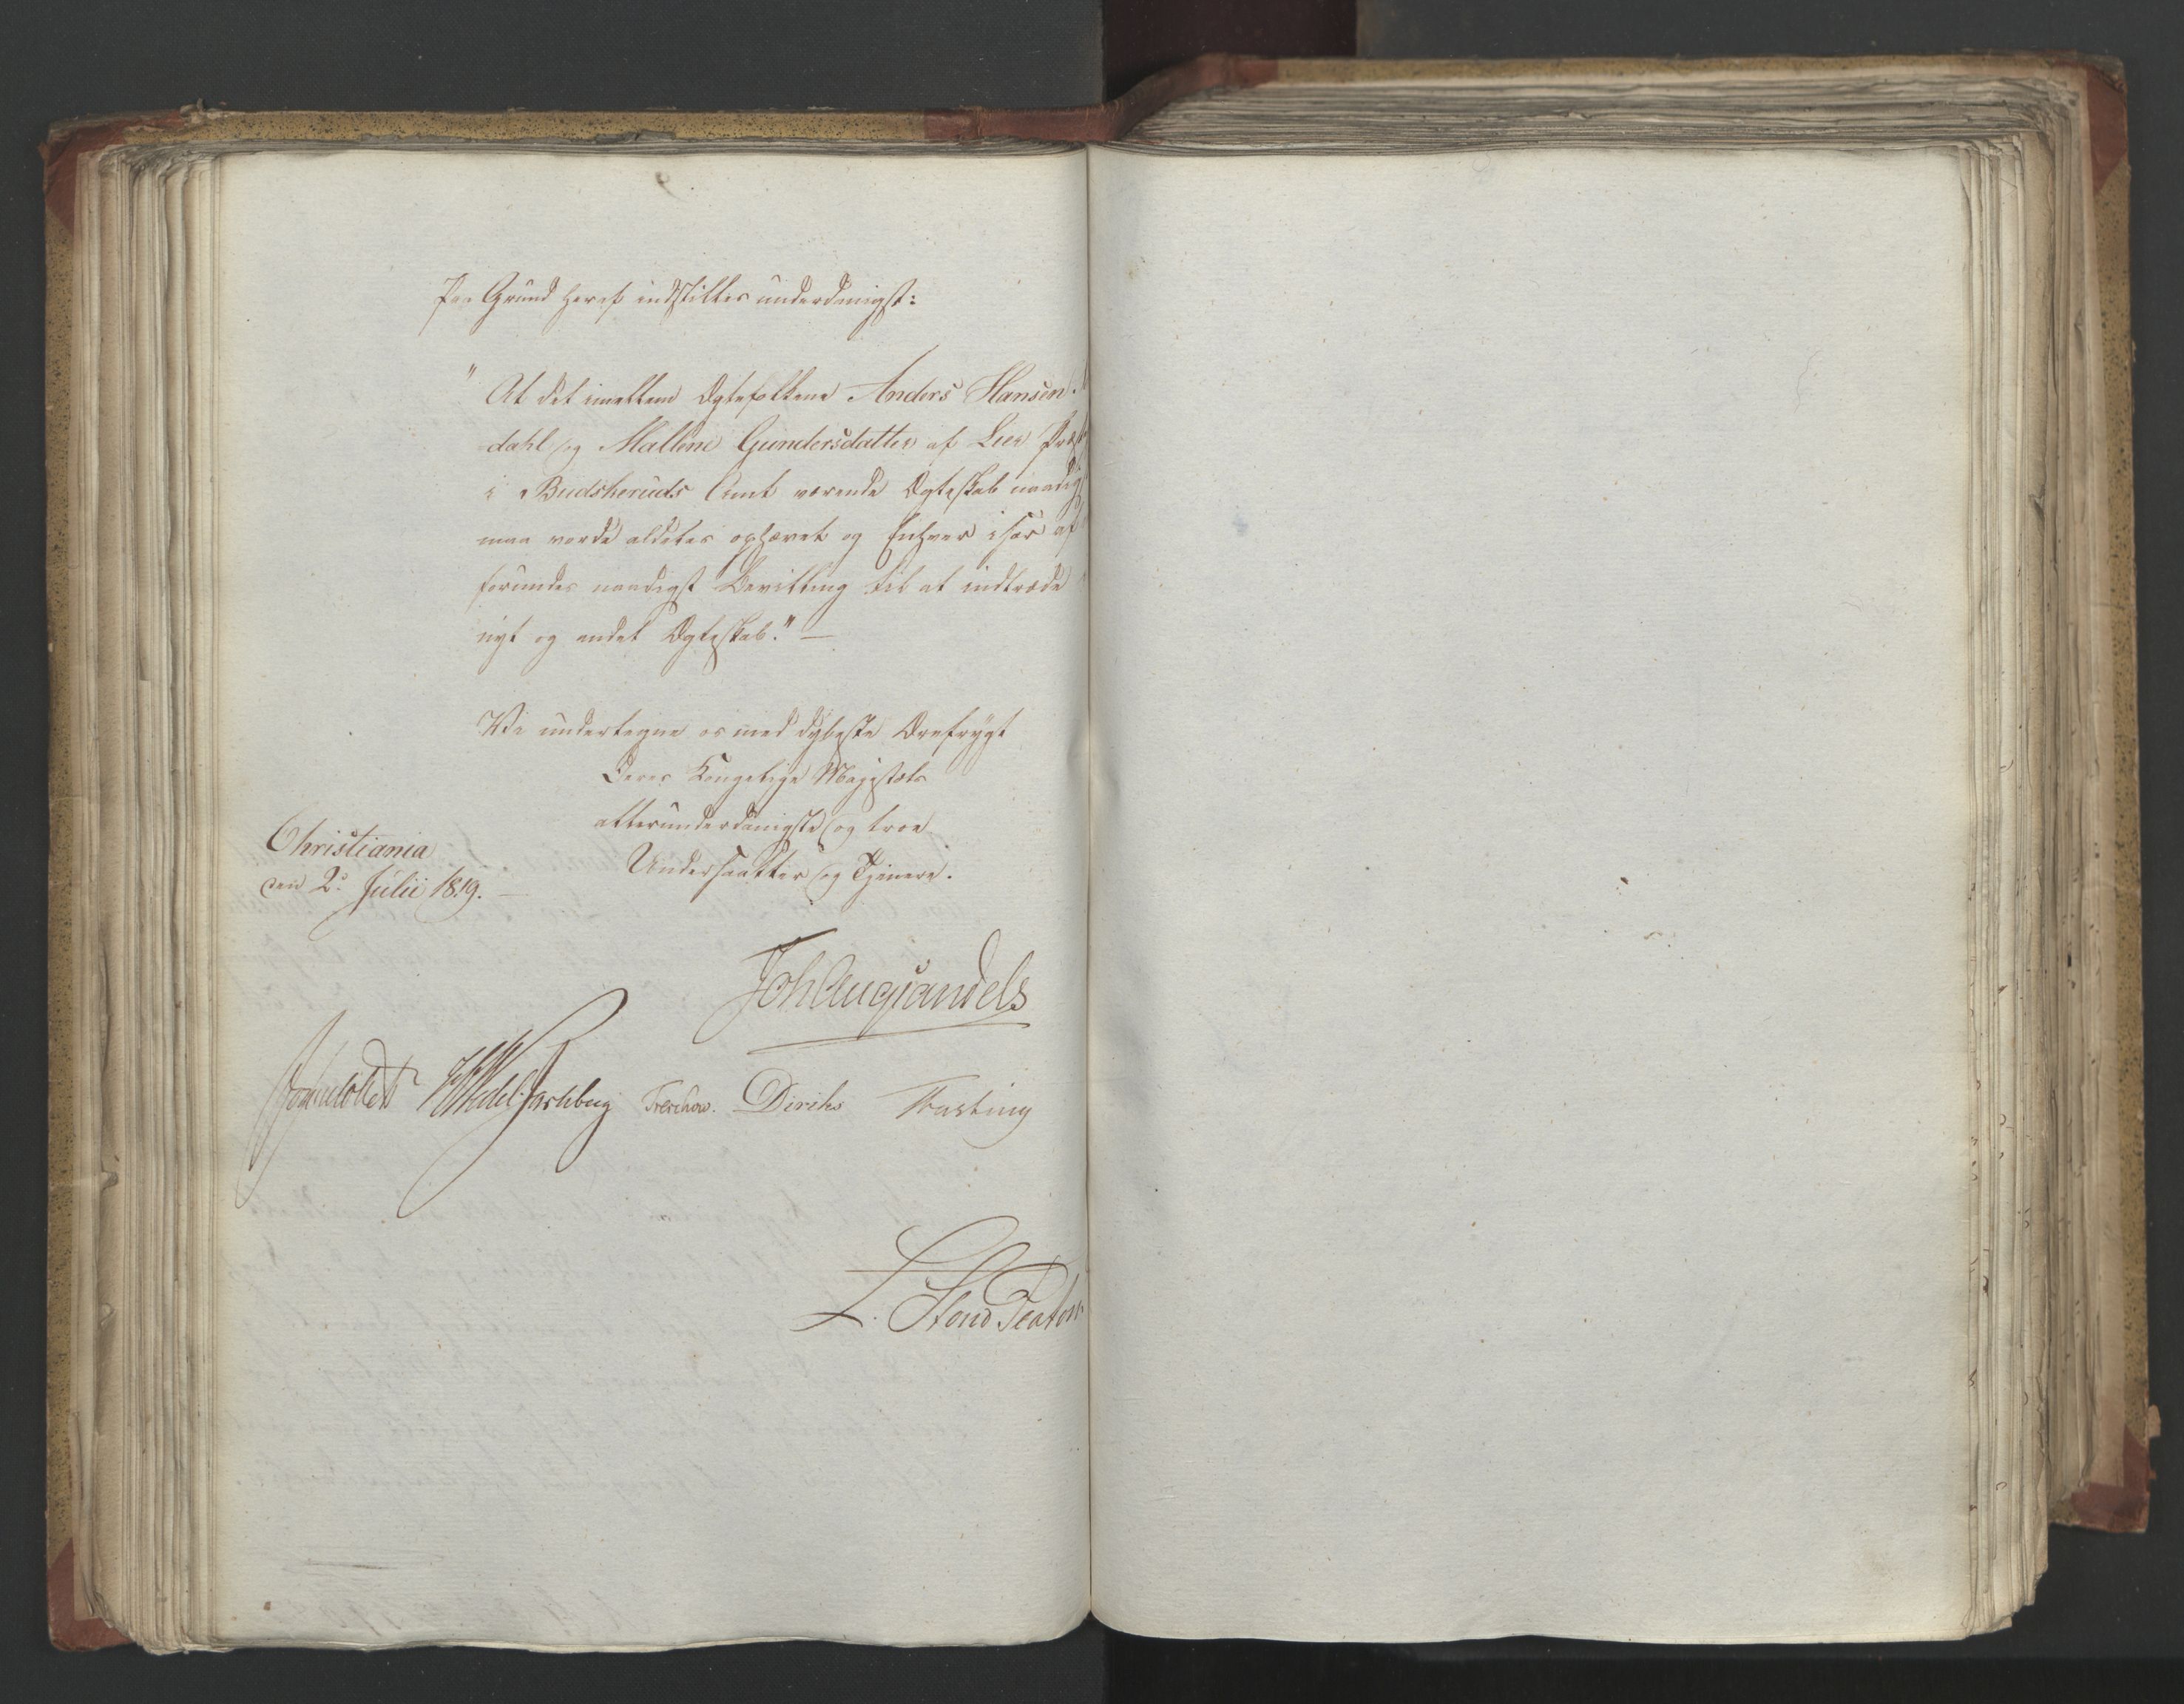 Paa Grund heraf indstilles underdanigst:
" At det imellem Ægtefolkene Anders Hansen
dahl og Mallene Gundersdatter af Lier Præste
i Budskeruds Amt værende Ægteskab naadigst
maa vorde aldeles ophævet og Enhver især af
forundes naadigst Bevilling til at indtræde
nyt og andet Ægteskab." —
Vi undertegne os med dybeste Ærefrygt
Deres Kongelige Majestæts
allerunderdanigste og troe
Undersaatter og Tjenere.
Christiania
den 2. Julii 1819. —
Joh Aug Sandels
Sommerhielm HWedel Jarlsberg Treschow. Diriks Fasting
L.